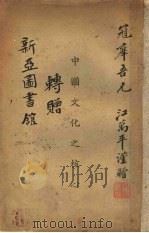 冠華吾兄
江萬平謹贈
中國文化之
轉贈
新亞圖書館